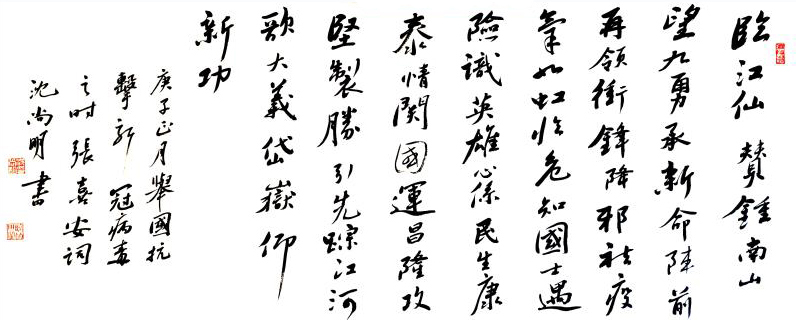 臨江仙 贊鍾南山
望九勇承新命陣前
再領衝鋒降邪祛疫
氣如虹臨危知國士遇
險識英雄心係民生康
泰情関國運昌隆攻
堅製勝引先踪江河
歌大義岱嶽仰
新功
庚子正月舉國抗
擊新冠病毒
之时張喜安詞
沈尚明書